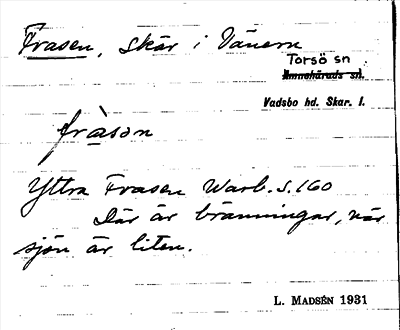 Frasen, skär i Vänern
Torsö sn
Amnehärads sn.
Vadsbo hd. Skar. l.
fràsən
Yttra Frasen Warb. S. 160
Där är bränningar, när
sjön är liten.
L. MADSÉN 1931